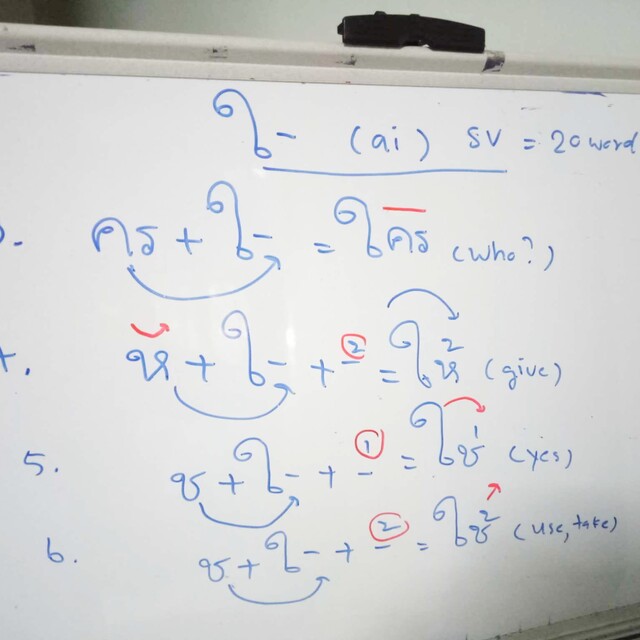 ใ- (ai) SV = 20 word
คร + ใ- = ใคร (who?)
ห + ใ- + ② = ให้ (give)
5. ช + ใ- + ① = ใช่ (yes)
6. ช + ใ- + ② = ใช้ (use, take)